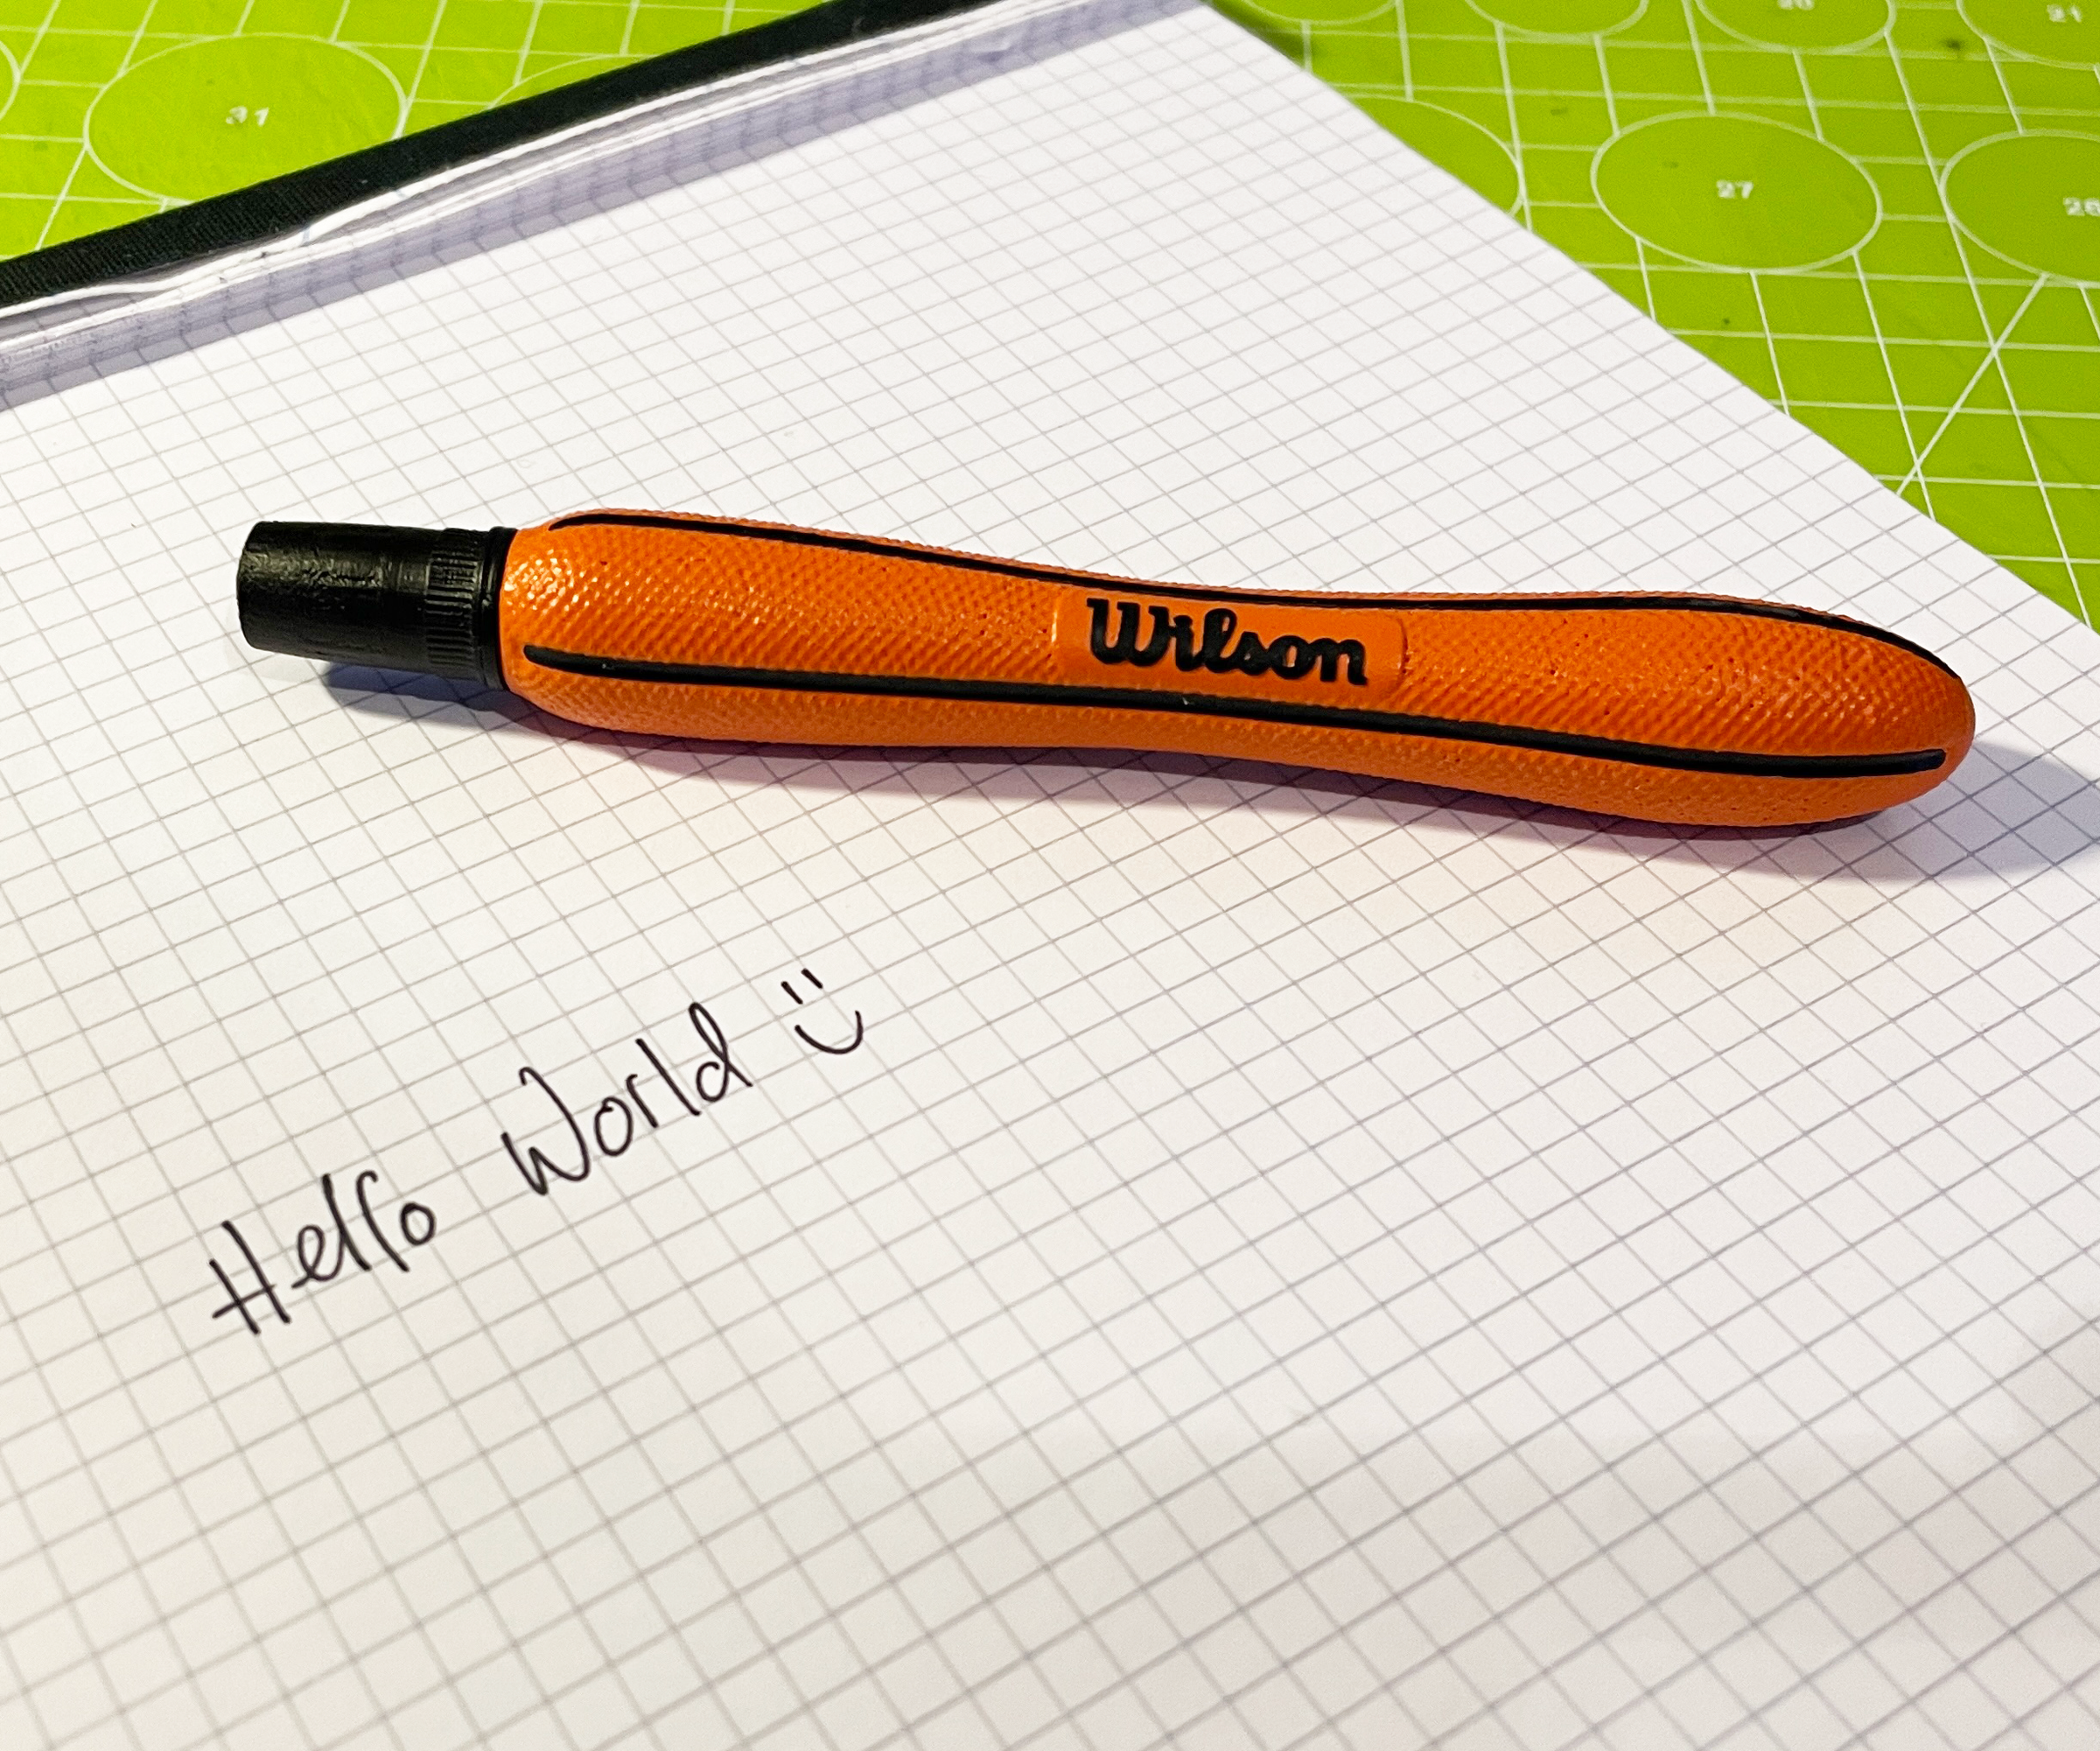 31
20
21
27
26
Wilson
Hello World